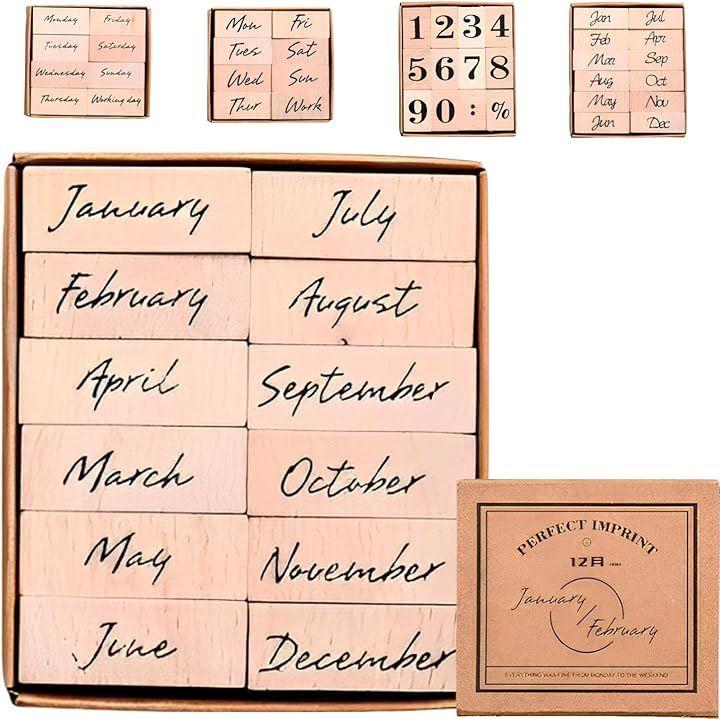 Monday Friday
Tuesday Saturday
Wednesday Sunday
Thursday Working day
Mon Fri
Tues Sat
Wed Sun
Thur Work
1 2 3 4
5 6 7 8
9 0 : %
Jan Jul
Feb Apr
Mar Sep
Aug Oct
May Nov
Jun Dec
January July
February August
April September
March October
May November
June December
PERFECT IMPRINT
12月
January
February
EVERYTHING WAS FINE FROM MONDAY TO THE WEEKEND